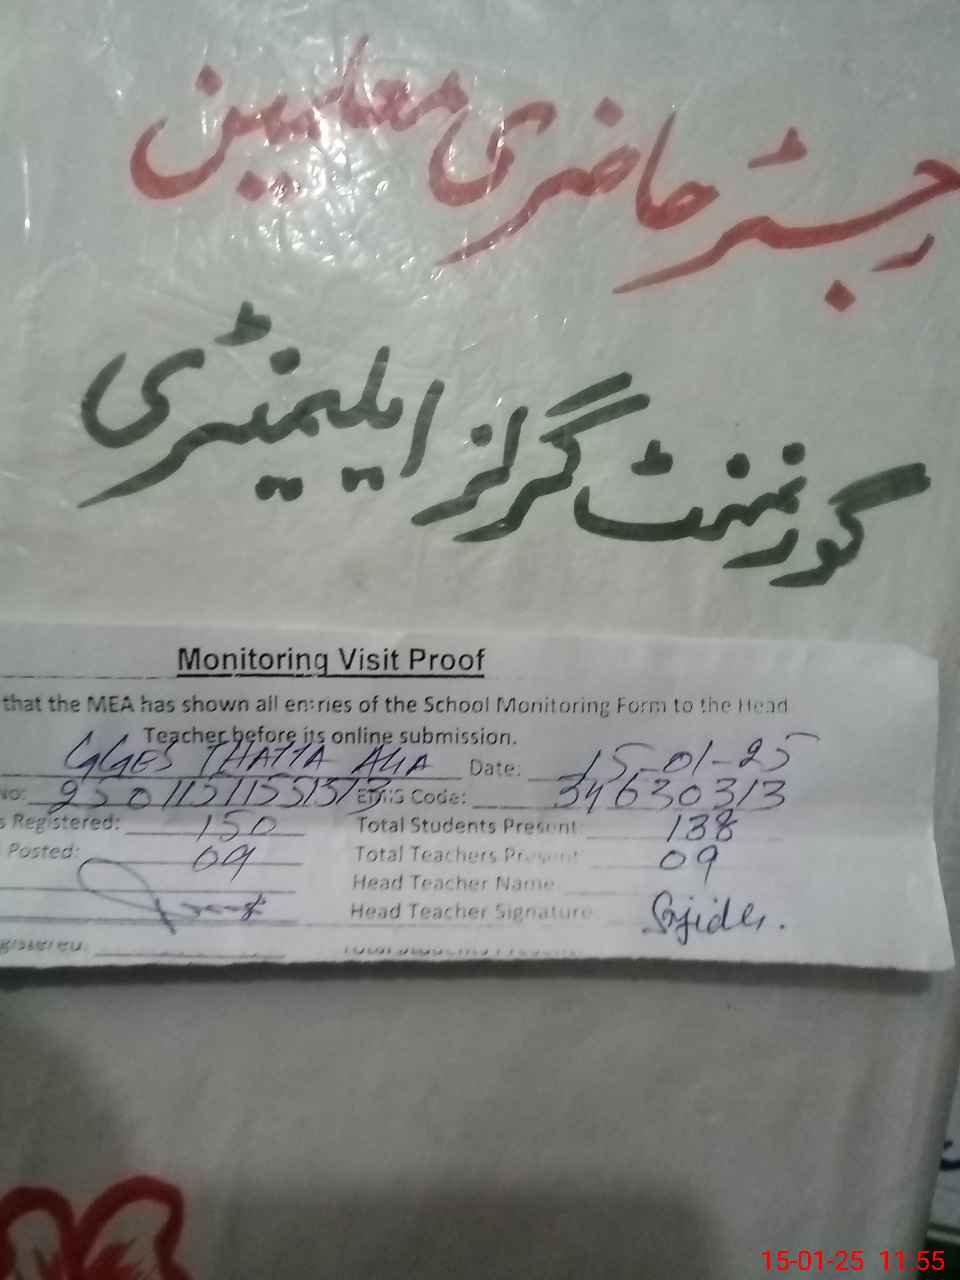 رجسٹر حاضری معلمین
گورنمنٹ گرلز ایلیمنٹری
Monitoring Visit Proof
that the MEA has shown all entries of the School Monitoring Form to the Head
Teacher before its online submission.
GGES THATTA ALIA Date: 15-01-25
No: EMIS Code: 34630313
s Registered: 150 Total Students Present: 138
Posted: 09 Total Teachers Present: 09
Head Teacher Name
Head Teacher Signature:
gistered:
15-01-25 11.55